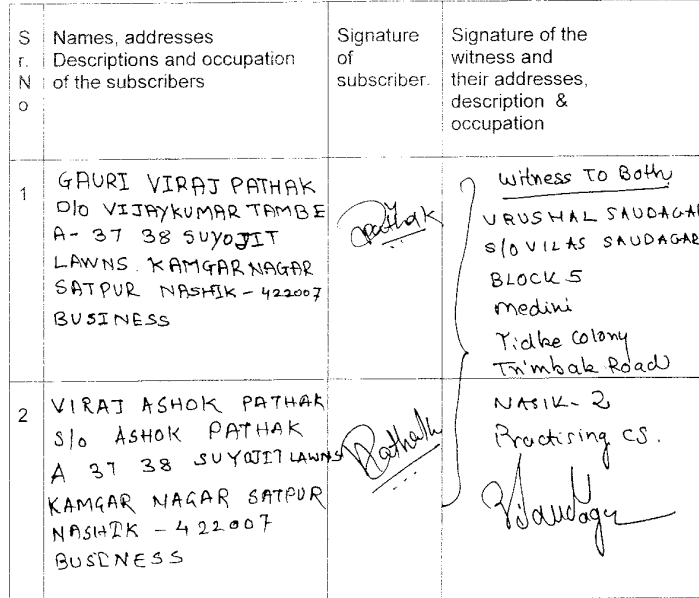 S r. N o
Names, addresses
Descriptions and occupation
of the subscribers
Signature
of
subscriber.
Signature of the
witness and
their addresses,
description &
occupation
1
GAURI VIRAJ PATHAK
D/o VIJAYKUMAR TAMBE
A- 37 38 SUYOJIT
LAWNS. KAMGAR NAGAR
SATPUR NASHIK - 422007
BUSINESS
Pathak
Witness To Both
VRUSHAL SAUDAGAR
S/O VILAS SAUDAGAR
BLOCK 5
Medini
Tidke Colony
Trimbak Road
NASIK- 2
Practising CS.
VSaudagar
2
VIRAJ ASHOK PATHAK
S/o ASHOK PATHAK
A 37 38 SUYOJIT LAWNS
KAMGAR NAGAR SATPUR
NASHIK - 422007
BUSINESS
Pathak